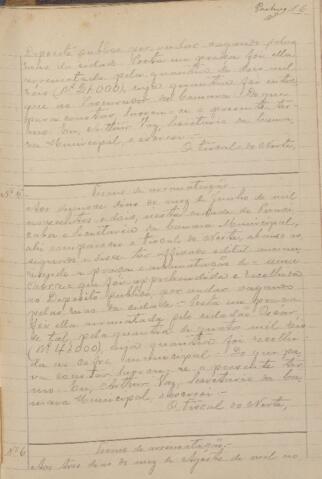 Deposito publico por andar vagando pelas
ruas da cidade. Posta em praça foi ella
arrematada pela quantia de dois mil
réis (Rs 2$000), cuja quantia foi entre
gue ao Procurador da Camara. Do que
para constar, lavrou-se o presente ter
mo. Eu, Arthur Vaz, Secretario da Cama
ra Municipal, escrevi.
O Fiscal do Norte,
Nº 5
Termo de arrematação.
Aos quinze dias do mez de Junho de mil
novecentos e dois, nesta cidade de
e Secretaria da Camara Municipal,
ahi compareceu o Fiscal do Norte, abaixo as
signado, e disse ter
a praça e arrematação de uma
cabra que foi apprehendida e recolhida
ao Deposito publico, por andar vagando
pelas ruas da cidade. Posta em praça
foi ella arrematada pelo cidadão Oscar
de tal, pela quantia de quatro mil réis
(Rs 4$000), cuja quantia foi recolhi
da ao cofre municipal. Do que pa
ra constar lavrou-se o presente ter
mo. Eu, Arthur Vaz, Secretario da Ca
mara Municipal, escrevi.
O Fiscal do Norte,
Nº 6
Termo de arrematação.
Aos tres dias do mez de Agosto de mil no